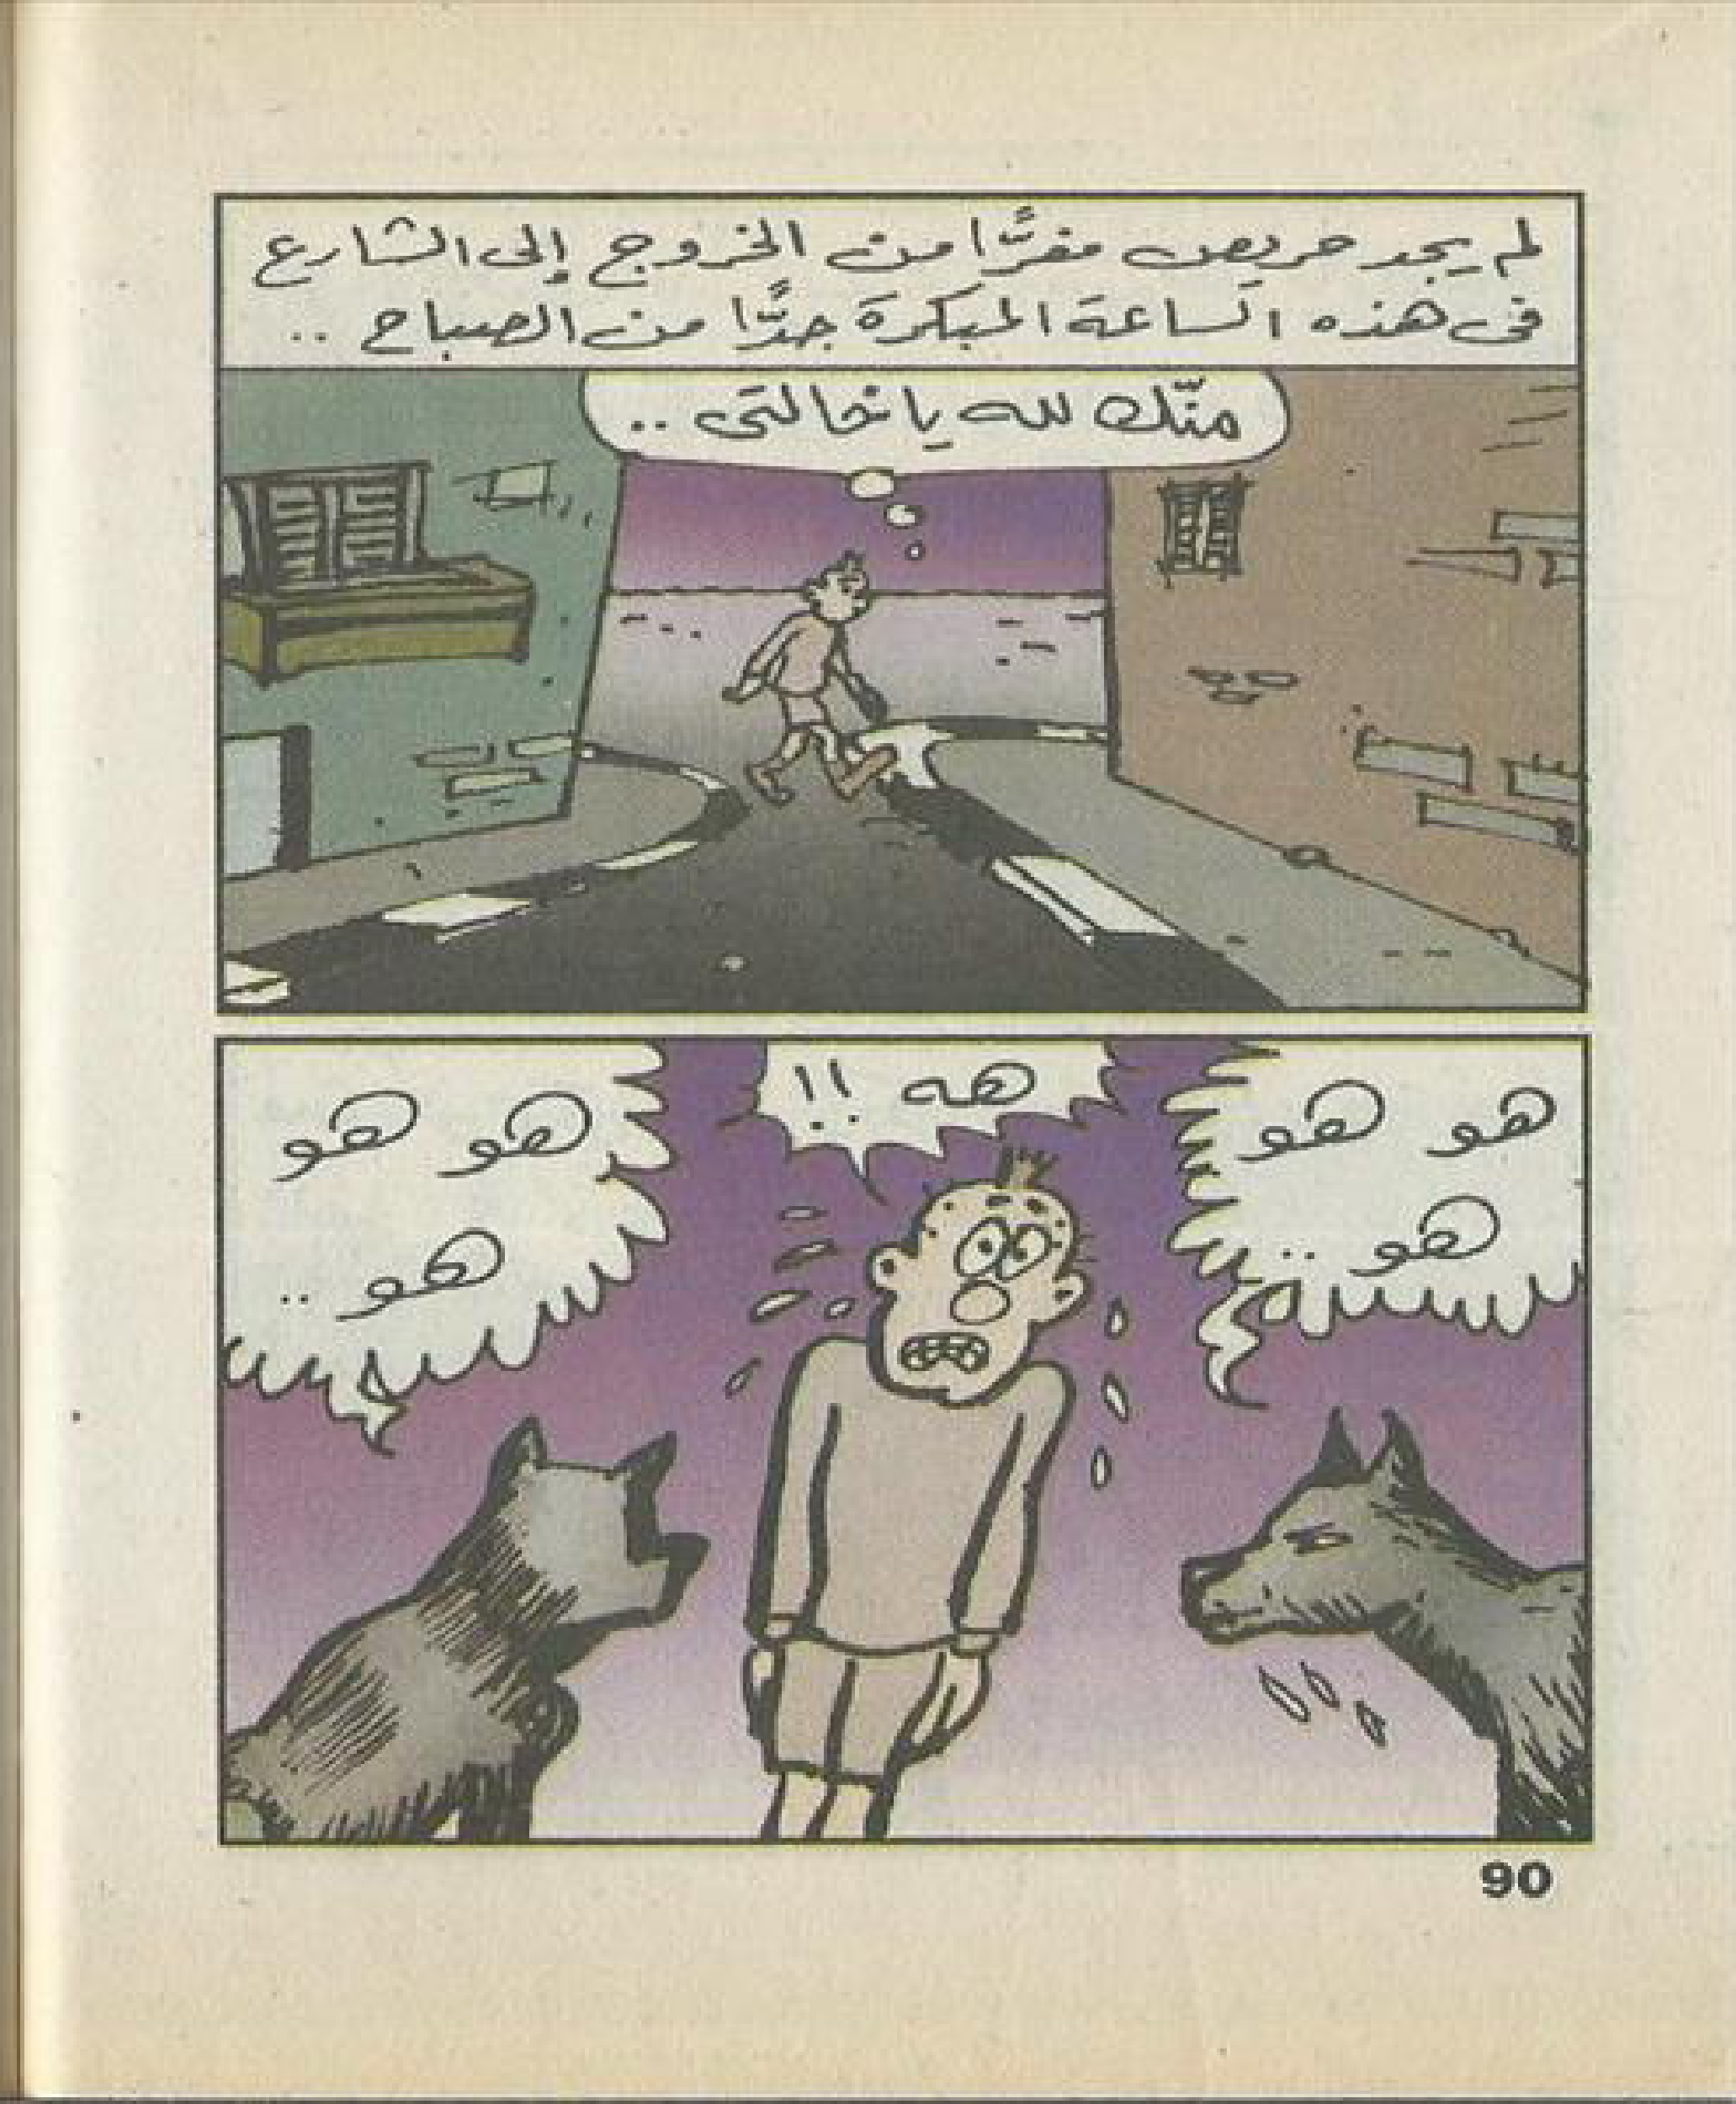 لم يجد حريص مفرًّا من الخروج إلى الشارع
فى هذه الساعة المبكرة جدًّا من الصباح ..
منّك لله يا خالتى ..
هو هو
هو ..
هه !!
هو هو
هو ..
90